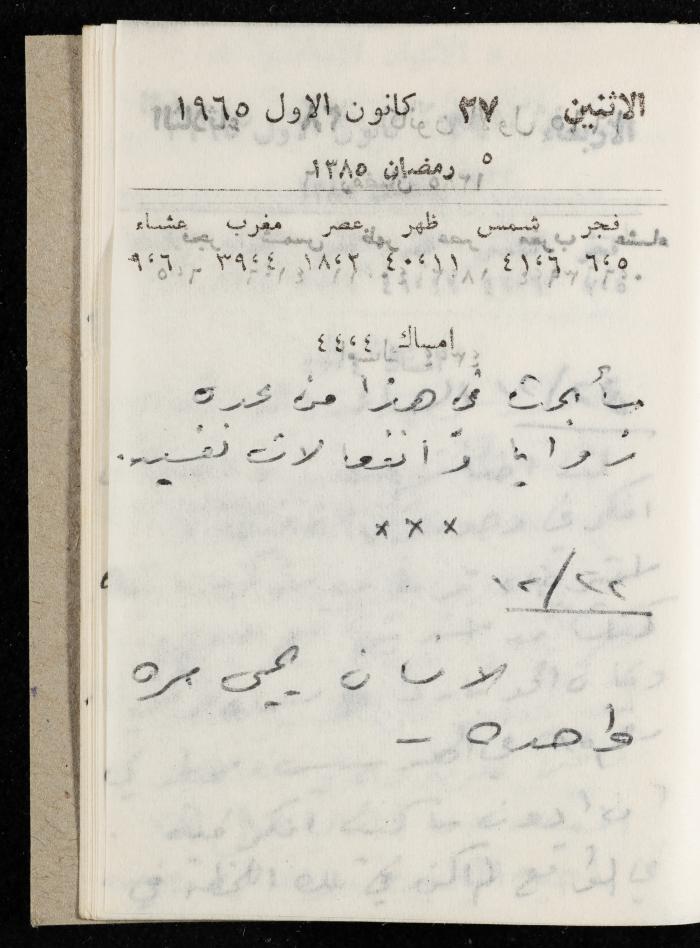 الاثنين ٢٧ كانون الاول ١٩٦٥
٥ رمضان ١٣٨٥
فجر شمس ظهر عصر مغرب عشاء
٦،٥ ٤١،٦ ٤٠،١١ ١٨،٢ ٣٩،٤ ٩،٦
امساك ٤٤،٤
سأبحث في هذا من عدة
زوايا وانفعالات نفسيه.
× × ×
٢٢/١٢
الانسان يحيى مره
واحده –